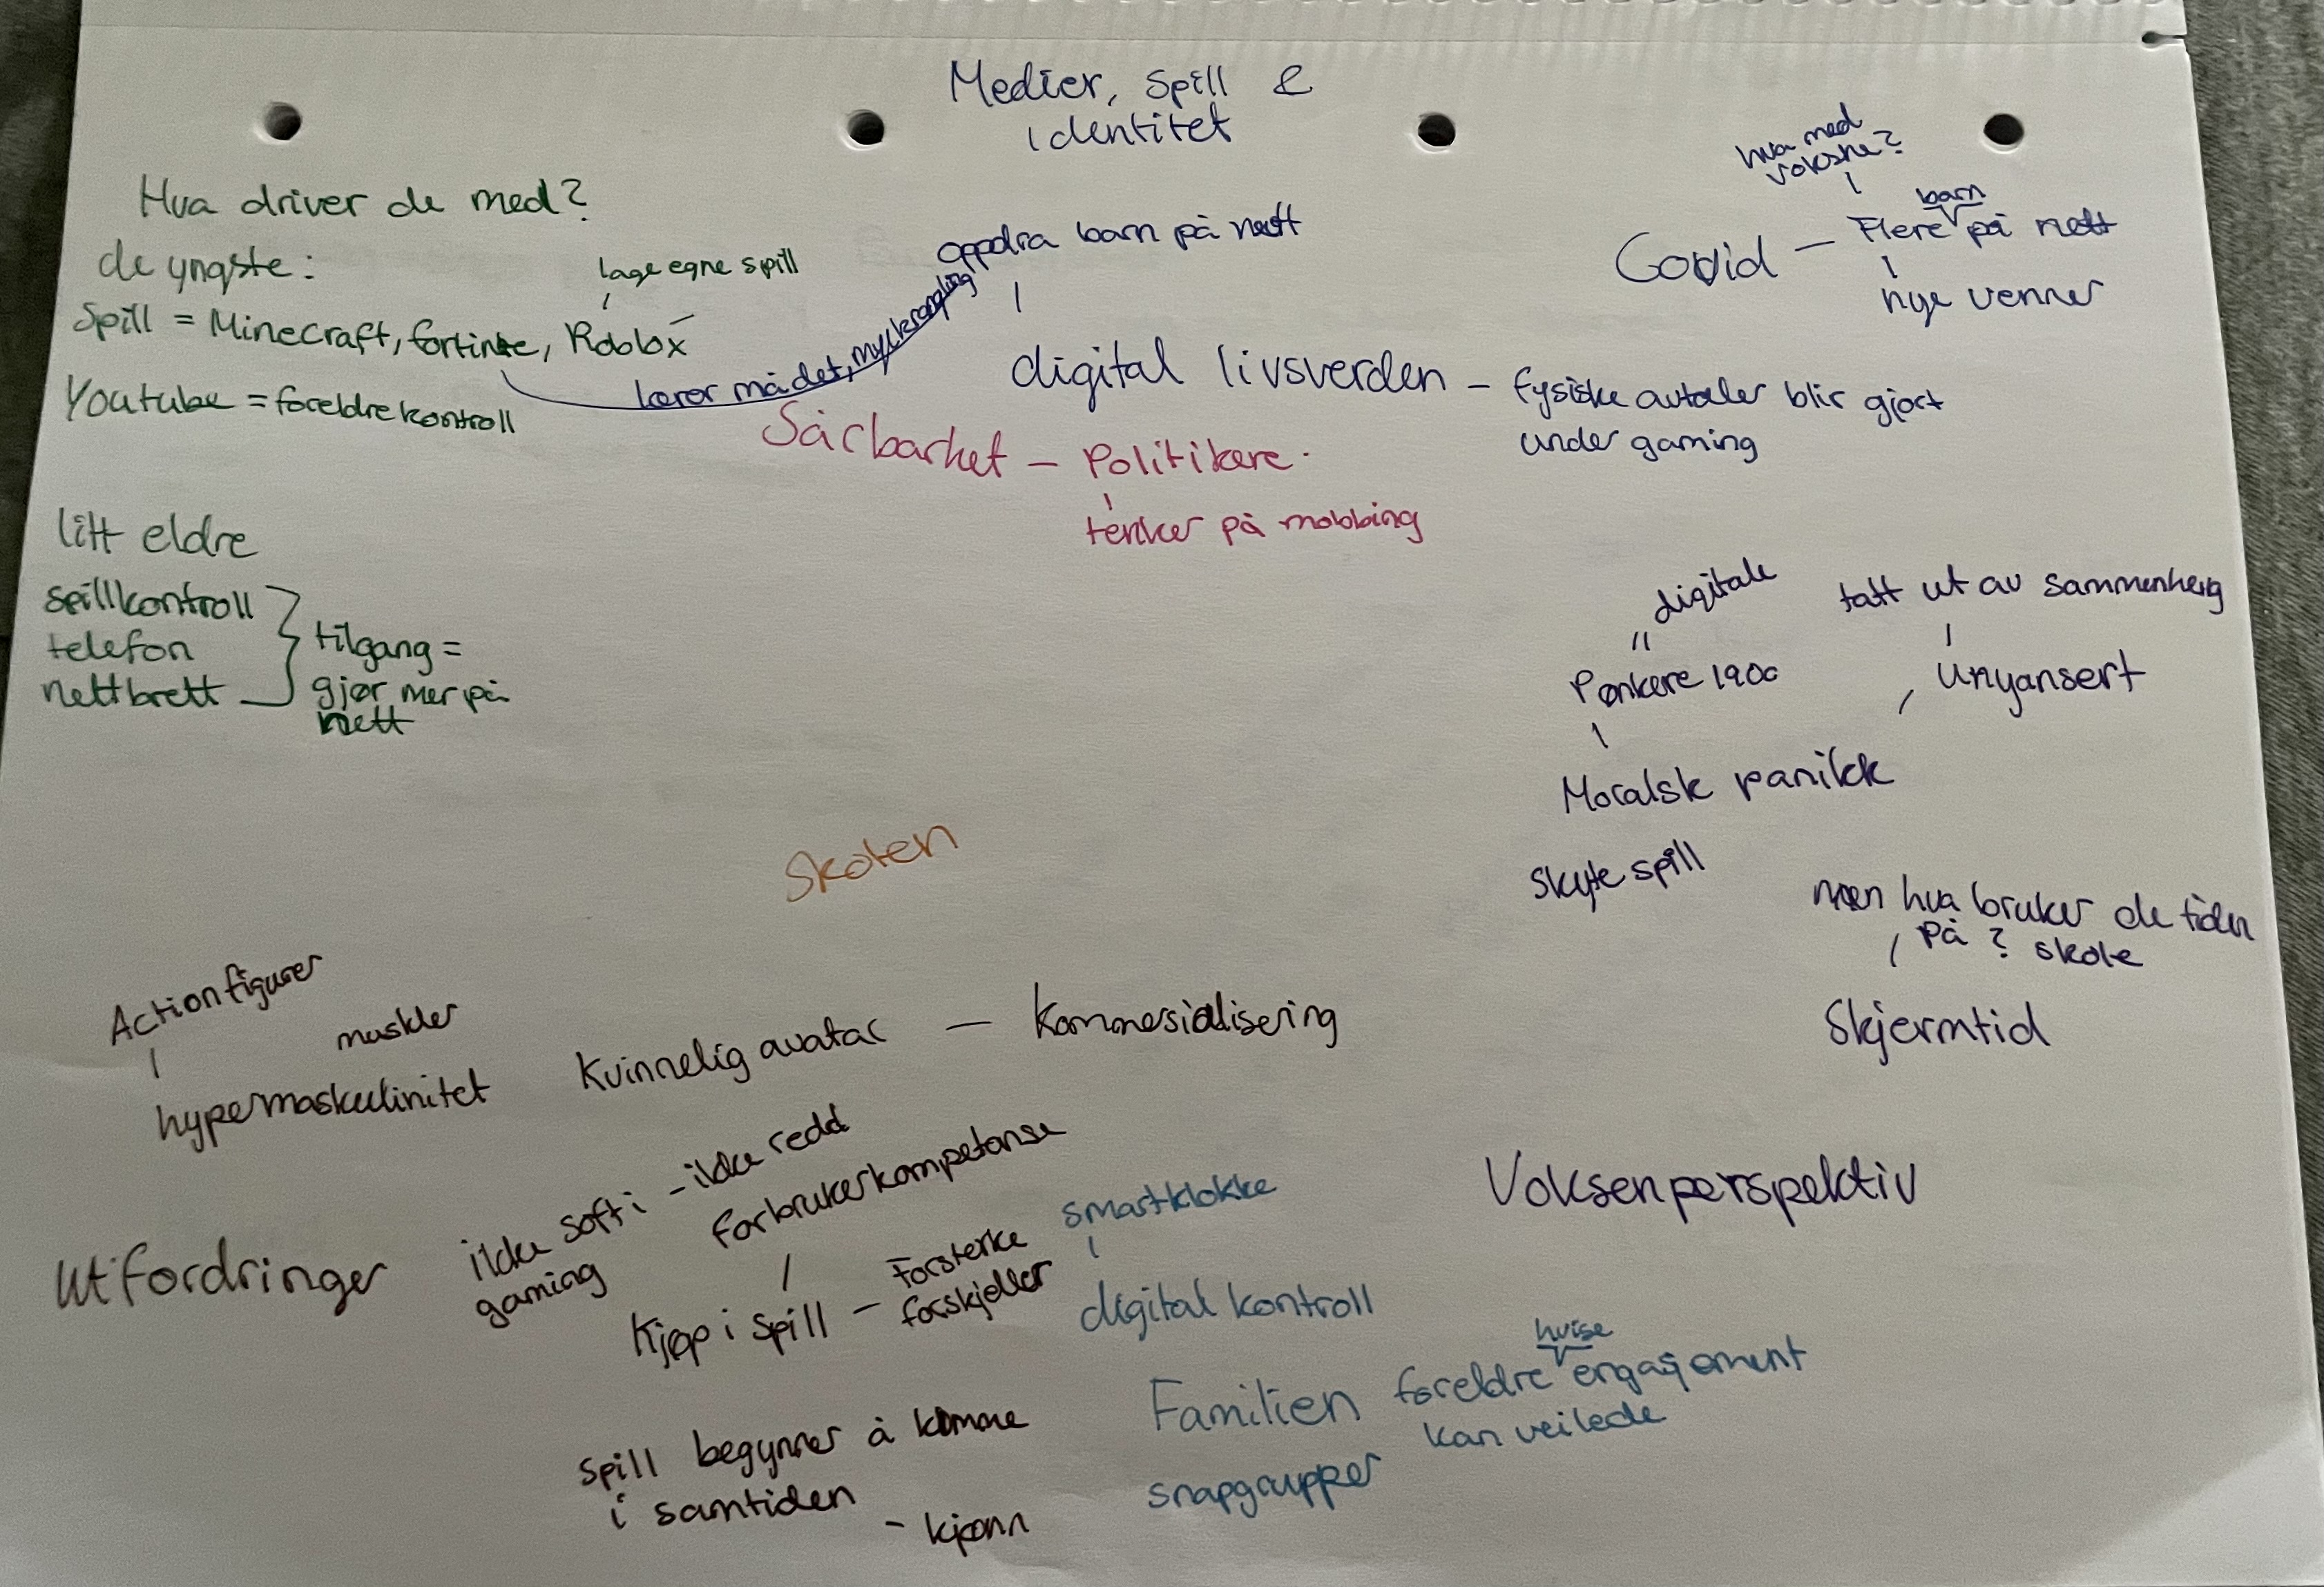 Medier, spill &
identitet
Hva driver de med?
de yngste:
lage egne spill
Spill = Minecraft, fortinte, Roblox
Youtube = foreldrekontroll
lærer må det, mye krangling
oppdra barn på nett
digital livsverden - fysiske avtaler blir gjort
under gaming
hva med
voksne?
barn
Covid - Flere på nett
nye venner
Sårbarhet - Politikere.
tenker på mobbing
litt eldre
spillkontroll
telefon
nettbrett
tilgang =
gjør mer på
nett
digitale
"
Pønkere 1900
tatt ut av sammenheng
Unyansert
Moralsk panikk
Skolen
skyte spill
men hva bruker de tiden
på? skole
Skjermtid
Actionfigurer
muskler
hypermaskulinitet
Kvinnelig avatar - Kommersialisering
Voksenperspektiv
Utfordringer
ikke soft i - ikke redd
gaming
forbrukerkompetanse
Kjøp i spill - Forsterke
forskjeller
smartklokke
digital kontroll
hvise
Familien foreldre engasjement
kan veilede
snapgrupper
spill begynner å komme
i samtiden
- kjønn